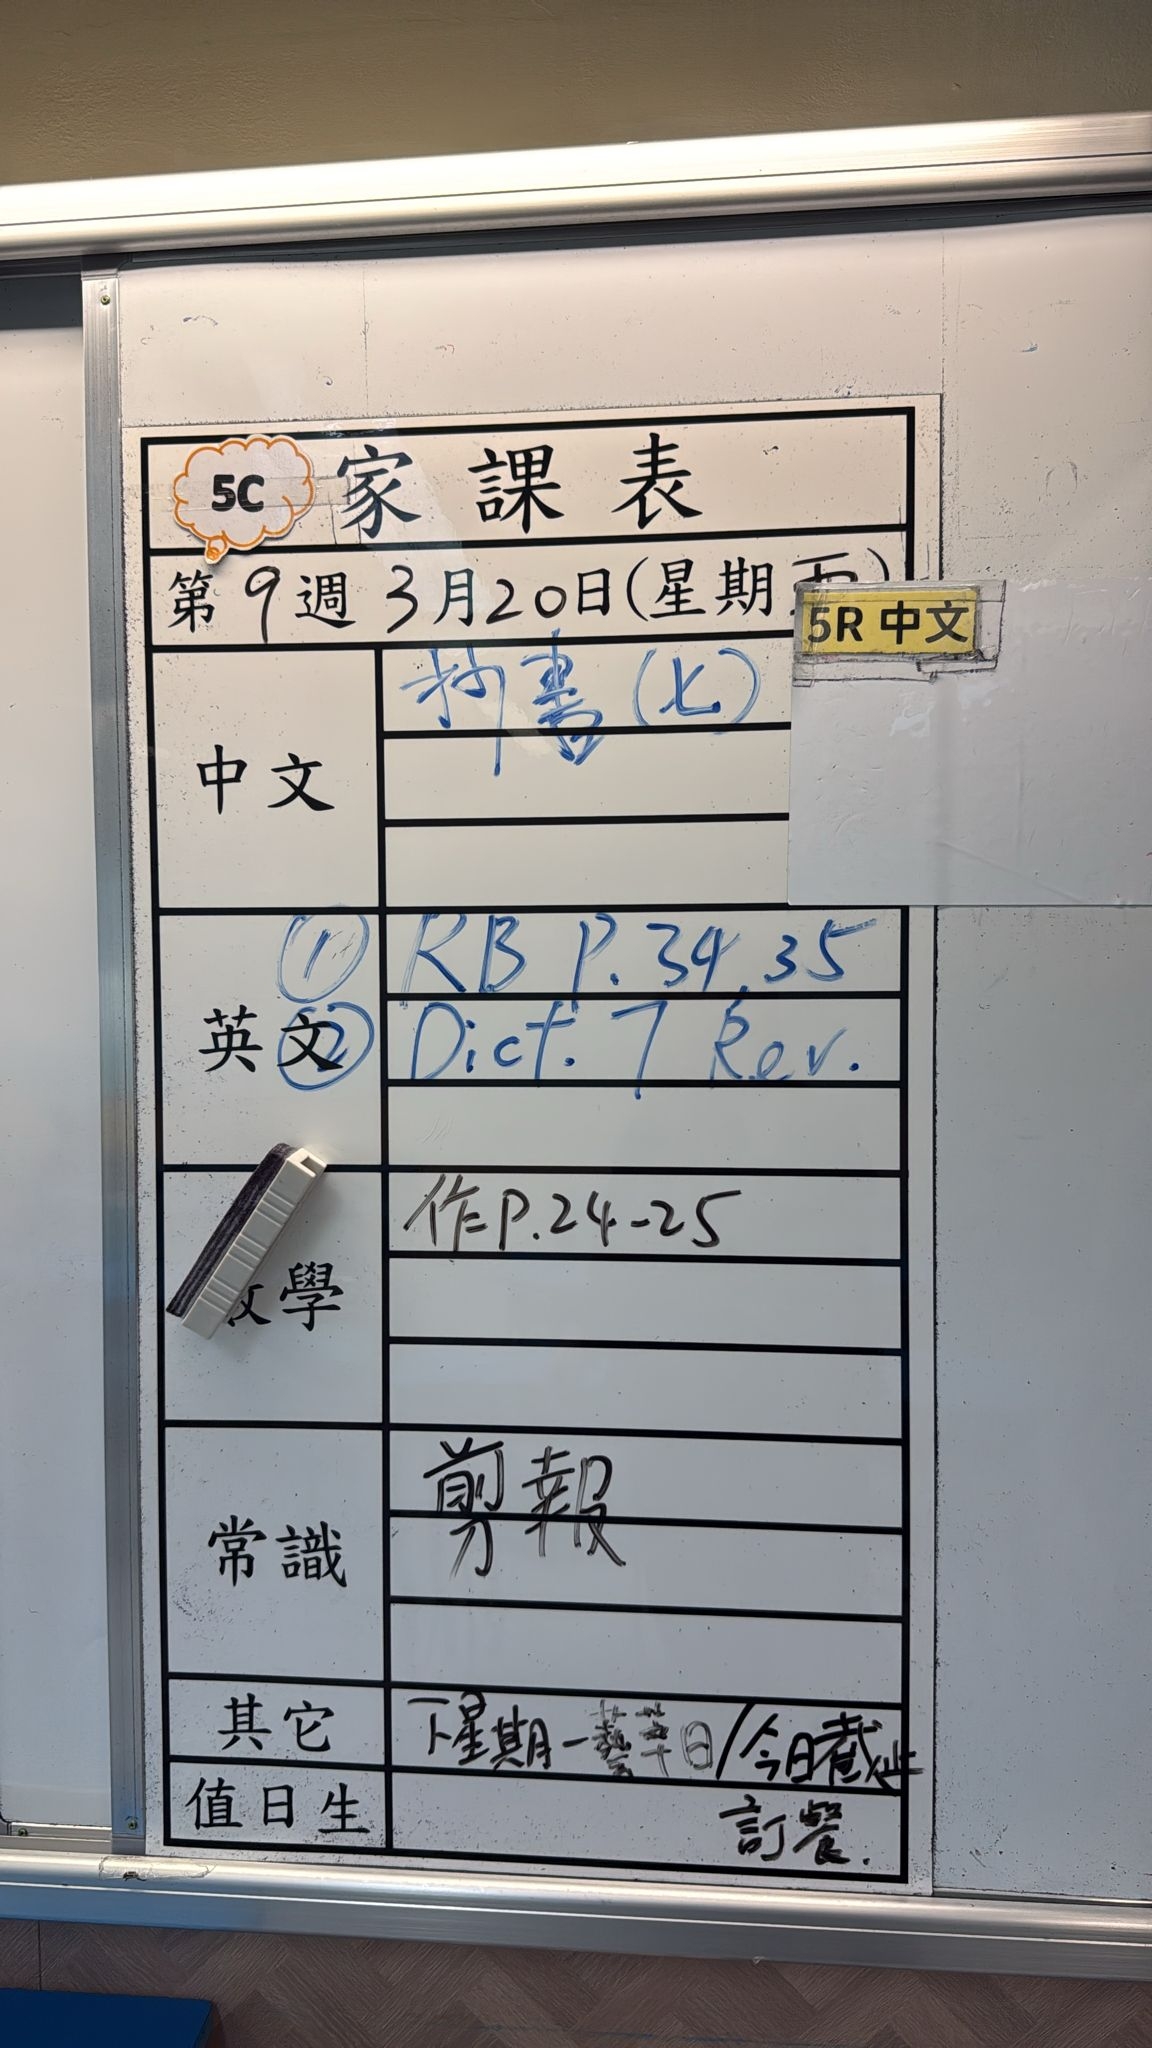 5C 家課表
第9週 3月20日(星期五)
5R 中文
中文 抄書(七)
英文 ① RB P.34,35
② Dict. 7 Rev.
數學 作P.24-25
常識 剪報
其它 下星期一藝萃日/今日截止
值日生 訂餐.